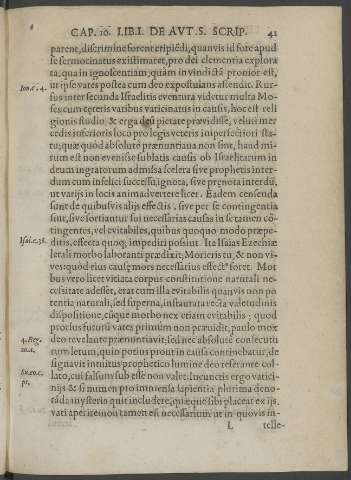 CAP. 10. LIB. I. DE AVT. S. SCRIP. 41
parente, discrimine forent eripiẽdi, quanvis id fore apud
se sermocinatus existimaret, pro dei clementia explora
ta, qua in ignoscentiam, quàm in vindictã pronior est,
Ion. c. 4. ut ipse vates postea cum deo expostulans astendit. Rur-
sus inter secunda Israelitis eventura videtur multa Mo-
ses, cum ceteris vatibus vaticinatus in causis, hoc est reli
gionis studio, & erga deũ pietate prævidisse, veluti mer
cedis inferioris loco pro legis veteris imperfectiori sta-
tu; quæ quòd absolutè prænuntiaua non sint, haud mi-
rum est non evenisse sublatis causis ob Israelitarum in
deum ingratorum admissa scelera sive prophetis inter-
dum cum infelici successu, ignota, sive prænota interdũ,
ut varijs in locis animadvertere licet. Eadem censenda
sunt de quibusvis alijs effectis, sive per se contingentia
sint, sive sortiantur sui necessarias causas in se tamen cõ-
tingentes, vel evitabiles, quibus quoquo modo præpe-
Isai. c. 38. ditis, effecta quoq; impediri possint. Ita Isaias Ezechiæ
letali morbo laboranti prædixit, Morieris tu, & non vi-
ves: quòd eius causę mors necessarius effectꝰ foret. Mor
bus vero licet vitiata corpus constitutione naturali ne-
cessitate adesset, erat cum illa evitabilis quanvis non po
tentia naturali, sed superna, instaurata recta valetudinis
dispositione, eúque morbo nex etiam evitabilis: quod
prorsus futurũ vates primum non prævidit, paulo mox
4. Reg. deo revelante prænuntiavit: sed nec absolutè consecutu
20. a. rum letum, quin potius prout in causa continebatur, de
signavit intuitus prophetico lumine deo referante col-
Ex. 20. c. lato, cui falsum sub esse non valet. Iucunctis ergo vatici-
pr. nijs & si mitem pro immensa sapientia plurima deno-
tãda mysteria quit includere, quæque sibi placeat ex ijs,
vati aperire: non tamen est necessarium, ut in quovis in-
L telle-